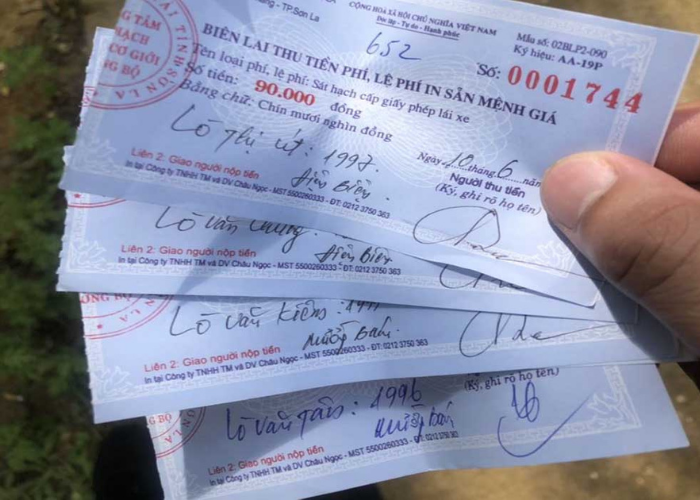 CỘNG HOÀ XÃ HỘI CHỦ NGHĨA VIỆT NAM
Độc lập - Tự do - Hạnh phúc
Mẫu số: 02BLP2-090
Ký hiệu: AA-19P
TP.Sơn La
652
Số: 0001744
BIÊN LAI THU TIỀN PHÍ, LỆ PHÍ IN SẴN MỆNH GIÁ
Tên loại phí, lệ phí: Sát hạch cấp giấy phép lái xe
Số tiền: 90.000 đồng
Bằng chữ: Chín mươi nghìn đồng
Lò Thị Út: 1997.
Điện Biên
Ngày 10 tháng 6 năm
Người thu tiền
(Ký, ghi rõ họ tên)
Liên 2: Giao người nộp tiền
In tại Công ty TNHH TM và DV Châu Ngọc - MST 5500260333 - ĐT: 0212 3750 363
Lò Văn Chung
Điện Biên
Liên 2: Giao người nộp tiền
In tại Công ty TNHH TM và DV Châu Ngọc - MST 5500260333 - ĐT: 0212 3750 363
Lò Văn Kiêm
Mường Bám
Liên 2: Giao người nộp tiền
In tại Công ty TNHH TM và DV Châu Ngọc - MST 5500260333 - ĐT: 0212 3750 363
(Ký, ghi rõ họ tên)
Lò Văn : 1996
Mường Bám
Liên 2: Giao người nộp tiền
In tại Công ty TNHH TM và DV Châu Ngọc - MST 5500260333 - ĐT: 0212 3750 363